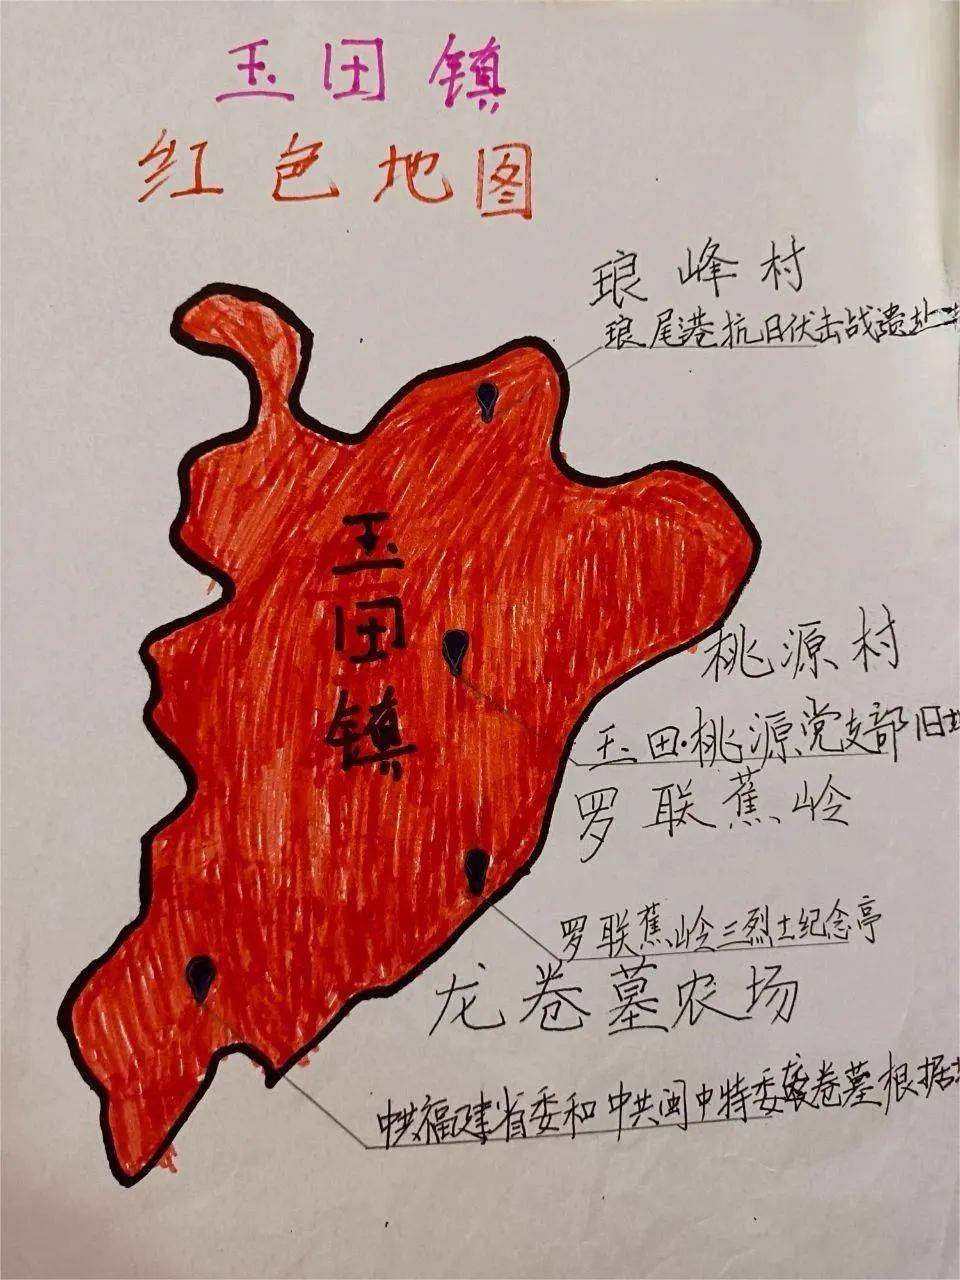 玉田镇
红色地图
琅峰村
琅尾港抗日伏击战遗址
玉田镇
桃源村
玉田·桃源党支部旧址
罗联蕉岭
罗联蕉岭三烈士纪念亭
龙卷墓农场
中共福建省委和中共闽中特委龙卷墓根据